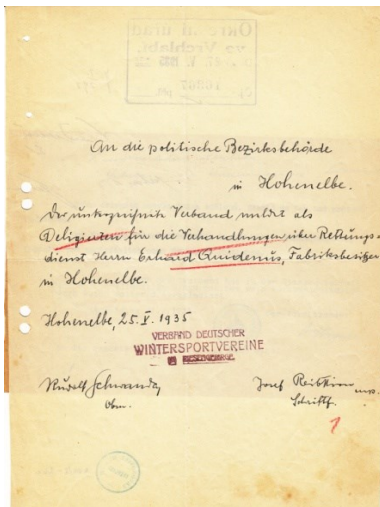 An die politische Bezirksbehörde
in Hohenelbe.
Der unterzeichnete Verband meldet als
Deligierten für die Verhandlungen über Rettungs-
dienst Herrn Erhard Quidenus, Fabriksbesitzer
in Hohenelbe.
Hohenelbe, 25. V. 1935
VERBAND DEUTSCHER
WINTERSPORTVEREINE
Rudolf
Josef
Obm.
Schriftf.
1